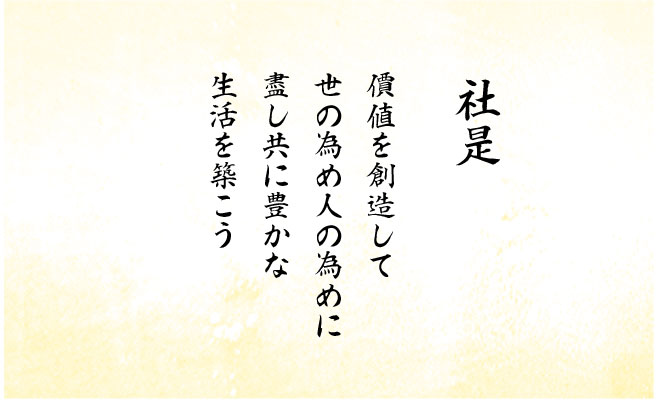 社是
價値を創造して
世の為め人の為めに
盡し共に豊かな
生活を築こう